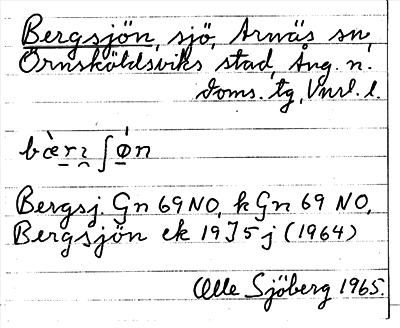 Bergsjön, sjö, Arnäs sn,
Örnsköldsviks stad, Ång. n.
doms. tg, Vnrl. l.
bæ̀rɿ ʃø̍n
Bergsj. Gn 69 NO, k Gn 69 NO,
Bergsjön ek 19J5j (1964)
Olle Sjöberg 1965.